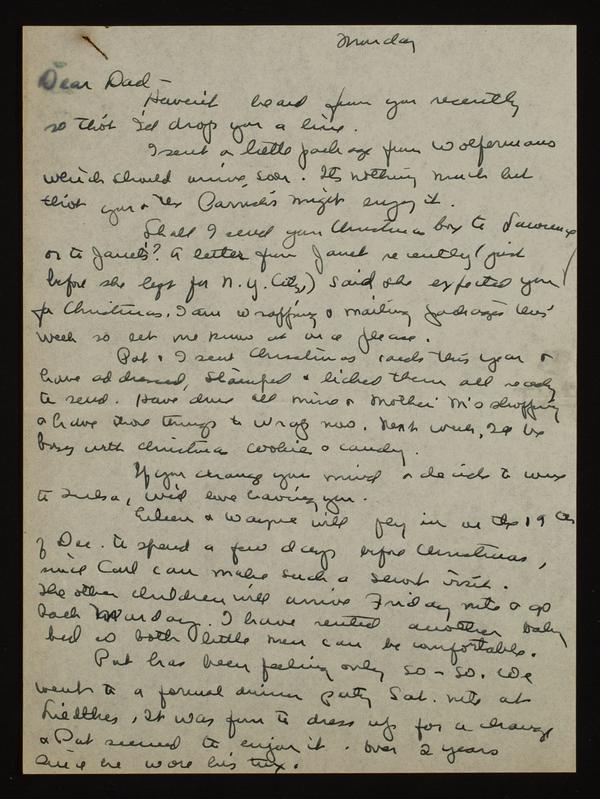 Monday
Dear Dad -
Haven't heard from you recently
so thot I'd drop you a line.
I sent a little package from Wolfermans
which should arrive soon. Its nothing much but
thot you & the might enjoy it.
Shall I send your Christmas box to Lawrence
or to Janet's? A letter from Janet recently (just
before she left for N.Y. City) said she expected you
for Christmas. I am wrapping & mailing packages this
week so let me know at once please.
Pat & I sent Christmas cards this year &
have addressed, stamped & licked them all ready
to send. Have done all mine & Mother M's shopping
& have those things to wrap now. Next week, I'll be
busy with Christmas cookies & candy.
If you change your mind & decide to come
to Tulsa, we'd love having you.
Eileen & Wayne will fly in on the 19th
of Dec. to spend a few days before Christmas,
since Carl can make such a short visit.
The other children will arrive Friday nite & go
back Monday. I have rented another baby
bed so both little men can be comfortable.
Pat has been feeling only so-so. We
went to a formal dinner party Sat. nite at
. It was fun to dress up for a change
& Pat seemed to enjoy it. Over 2 years
since he wore his tux.